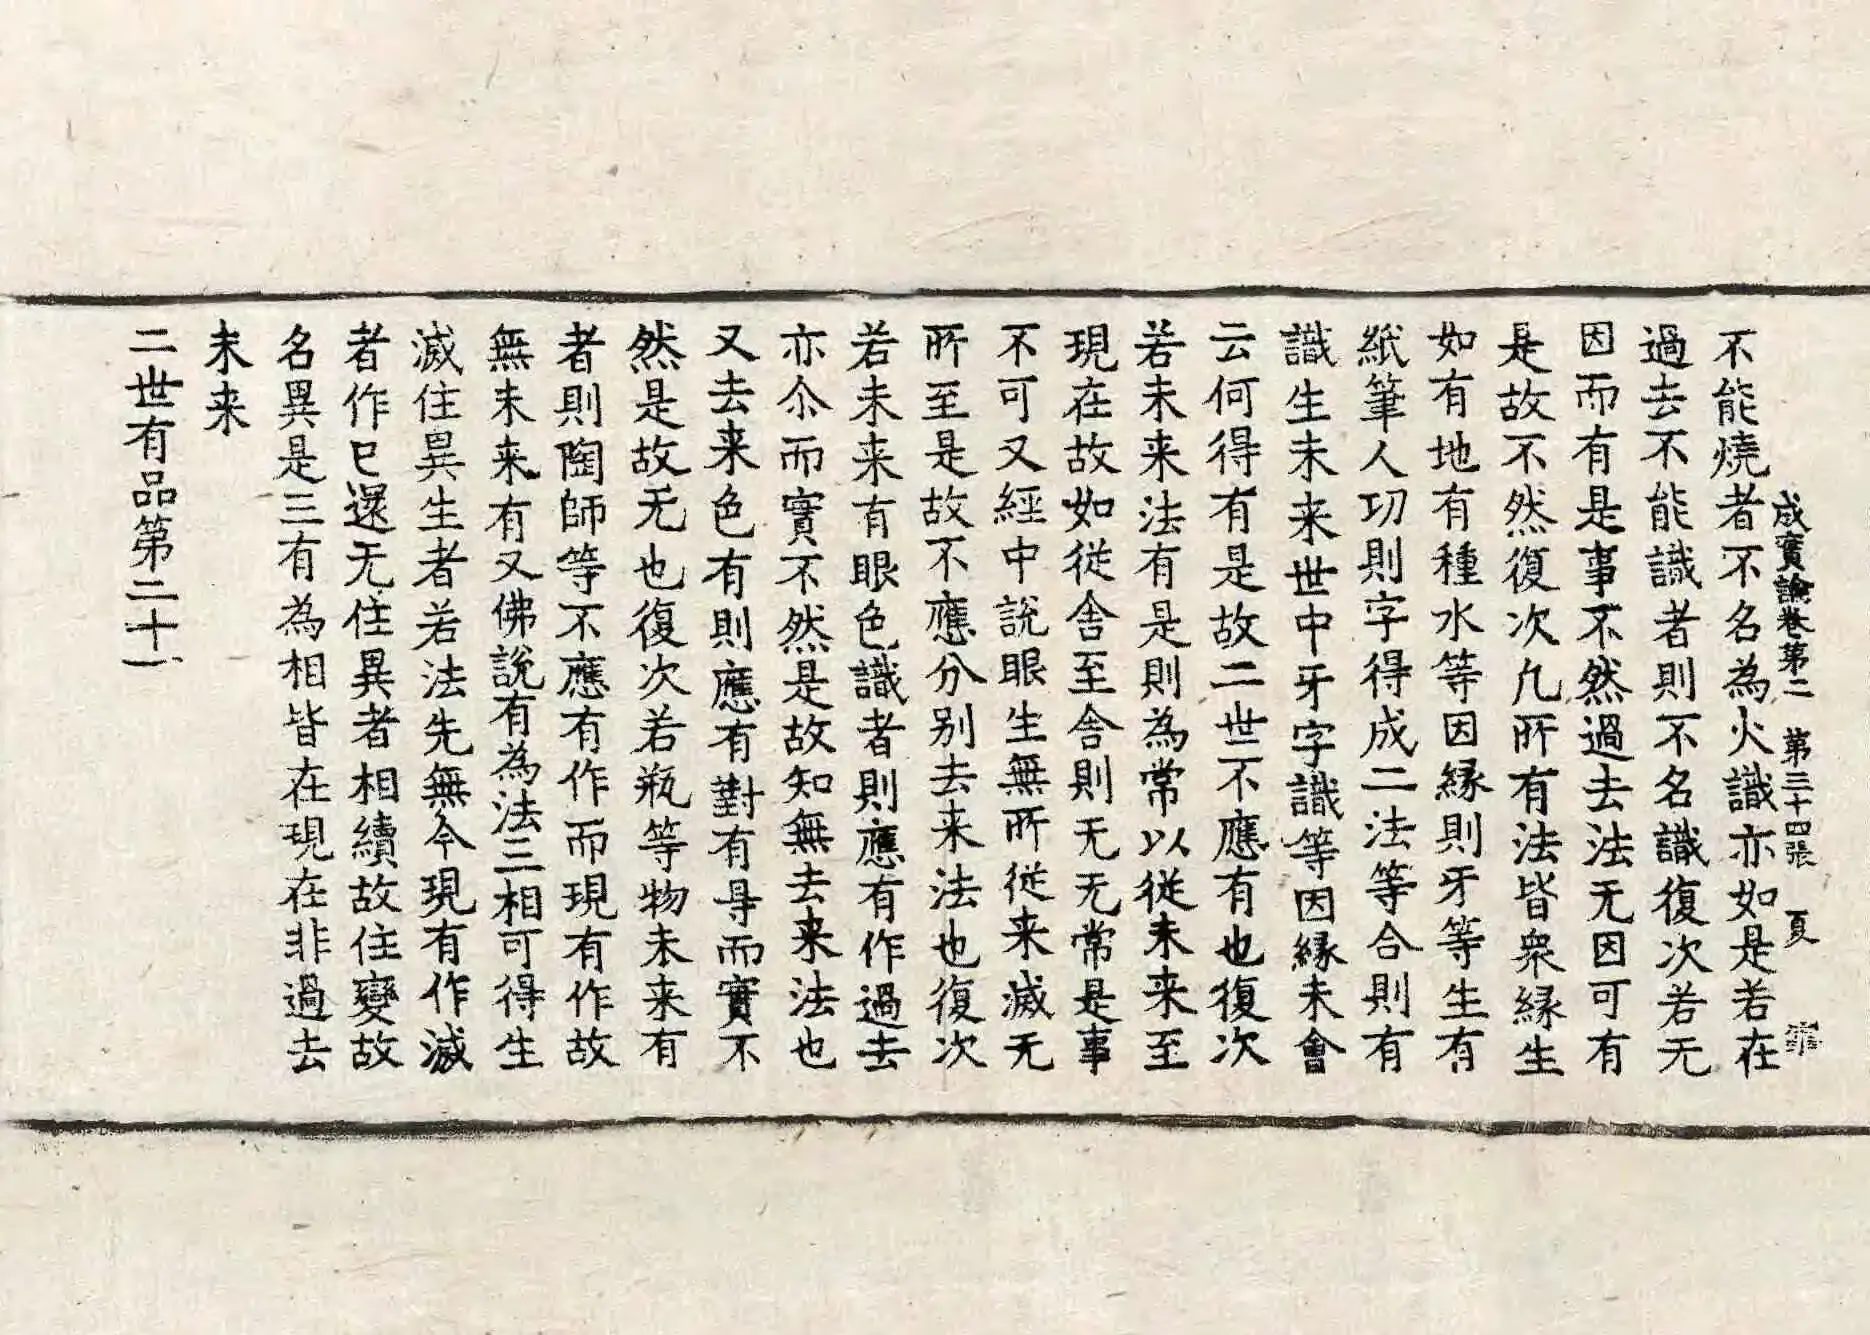 成實論卷第二 第三十四張 夏
不能燒者不名為火識亦如是若在
過去不能識者則不名識復次若无
因而有是事不然過去法无因可有
是故不然復次凢所有法皆衆縁生
如有地有種水等因縁則牙等生有
紙筆人功則字得成二法等合則有
識生未来世中牙字識等因縁未會
云何得有是故二世不應有也復次
若未来法有是則為常以従未来至
現在故如従舍至舍則无无常是事
不可又經中說眼生無所従来滅无
所至是故不應分别去来法也復次
若未来有眼色識者則應有作過去
亦尒而實不然是故知無去来法也
又去来色有則應有對有㝵而實不
然是故无也復次若瓶等物未来有
者則陶師等不應有作而現有作故
無未来有又佛說有為法三相可得生
滅住異生者若法先無今現有作滅
者作已還无住異者相續故住變故
名異是三有為相皆在現在非過去
未来
二世有品第二十一